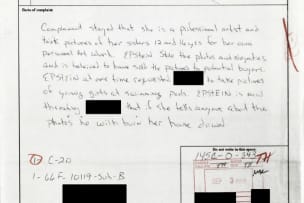 Facts of complaint
Complainant stated that she is a professional artist and
took pictures of her sisters 12 and 16 yrs for her own
personal art work. EPSTEIN stole the photos and negatives
and is believed to have sold the pictures to potential buyers.
EPSTEIN at one time requested to take pictures
of young girls at swimming pools. EPSTEIN is now
threatening that if she tells anyone about the
photos he will burn her house down
Do not write in this space
C-20
1-66F-10119-Sub-B